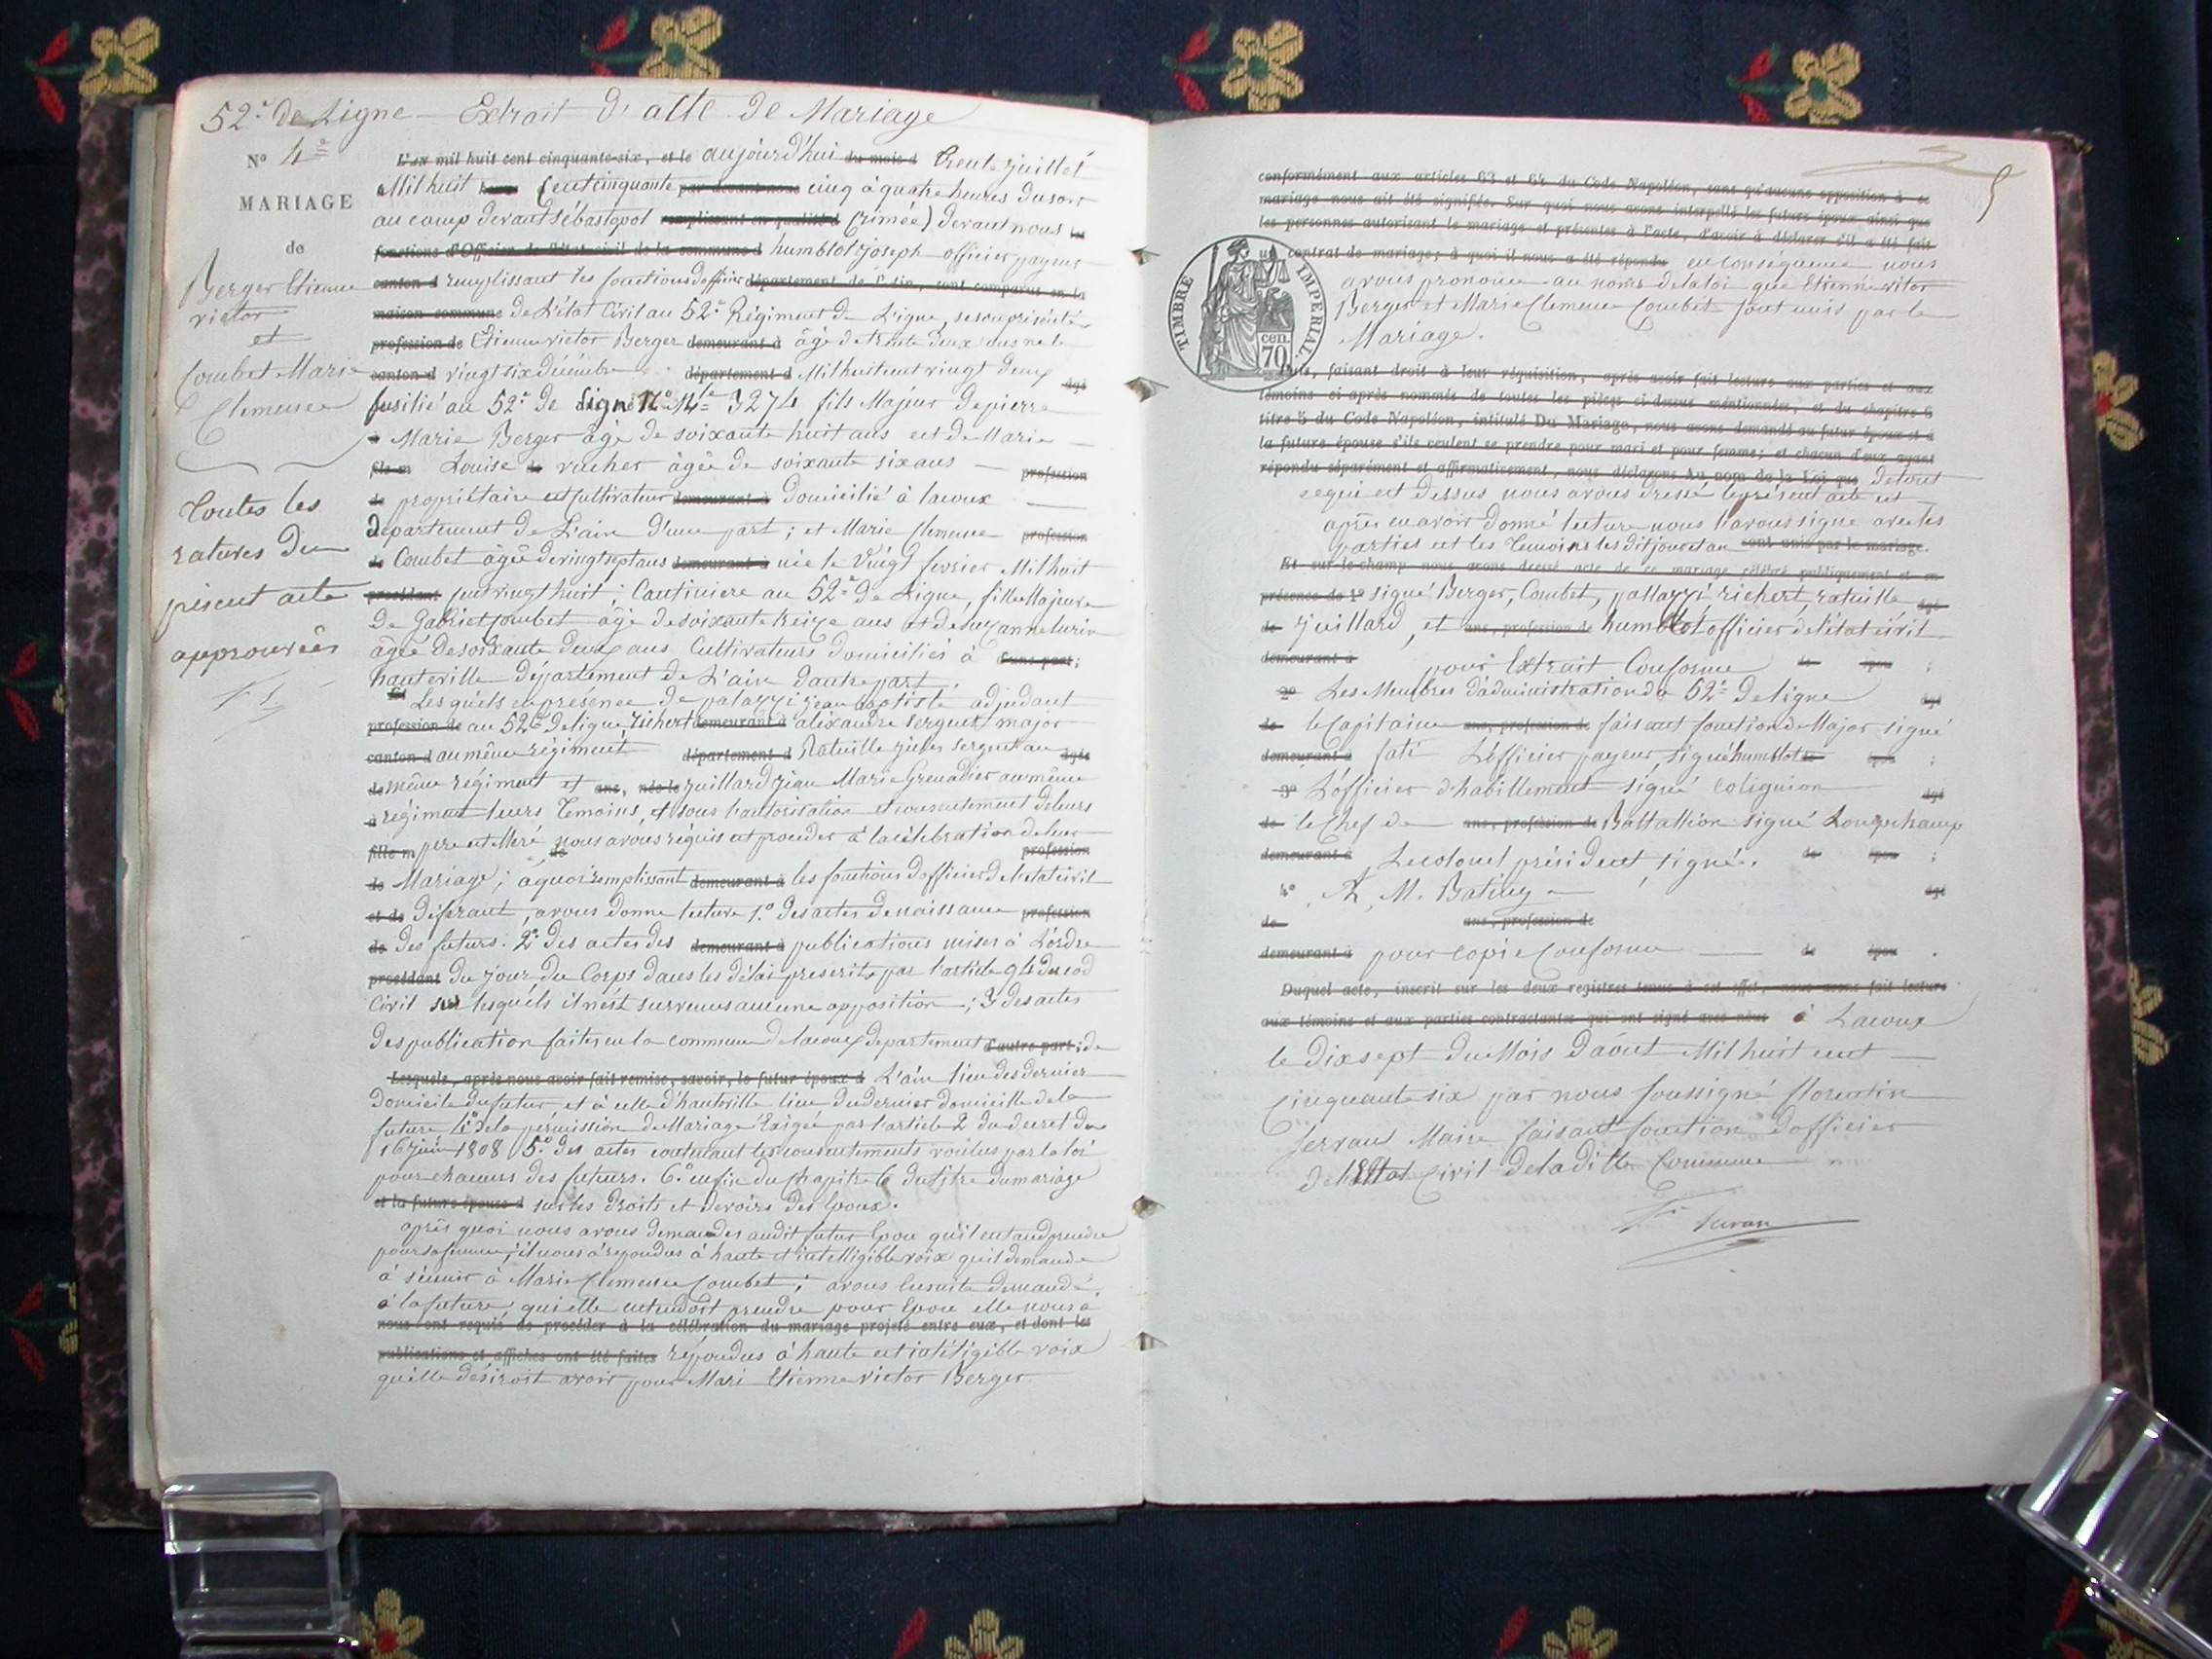 52e de Ligne - Extrait d'acte de Mariage
No 4e
MARIAGE
de
Berger Etienne
victor
et
Combet Marie
Clemence
Toutes les
ratures du
présent acte
approuvées
L'an mil huit cent cinquante-six, et le aujourd'hui du mois d Trente juillet
Mil huit cent cinquante par devant nous cinq à quatre heures du soir
au camp devant sébastopol remplissant en qualité d (rimée) devant nous les
fonctions d'Officier de l'état-civil de la commune d humblot joseph officier payeur
canton d remplissant les fonctions d'officier département de l'Ain, sont comparus en la
maison commune de L'état Civil au 52e Régiment de Ligne, se son présenté
profession de Etienne victor Berger demeurant à âgé de trente deux ans né le
canton d vingt six décembre département d Mil huit cent vingt deux âgé
fusilié au 52e de Ligne No Mle 3274 fils Majeur de pierre
à Marie Berger âgé de soixante huit ans et de Marie
fils m Louise de rucher âgée de soixante six ans profession
de propriétaire et cultivateur demeurant à domicilié à lacoux
Département de L'ain D'une part ; et Marie Clemence profession
de Combet âgée de vingt sept ans demeurant à née le vingt fevrier Mil huit
procédant cent vingt huit ; Cantiniere au 52e de Ligne, fille Majeure
de Gabriel Combet âgé de soixante treize ans et de suzanne lurin
âgée de soixante deux ans Cultivateurs domiciliés à d'une part;
hauteville Département de L'ain d'autre part.
Et Les quels en présence de palazzi jean baptiste adjudant
profession de au 52e De ligne, Richert demeurant à alixandre sergent major
canton d au même régiment département d Ratuille jules sergent au âgés
de même régiment et ans, née le juillard jean Marie Grenadier au même
à régiment leurs Temoins, et sous l'autorisation et consentement de leurs
fille m pere et Mère nous avons réquis et proceder à la célébration de leur
de profession
de Mariage ; à quoi remplissant demeurant à les fonctions d'officier de l'etat civil
et de Déferant, avons donné lecture 1o. Des actes de naissance profession
de Des futurs. 2o. Des actes des demeurant à publications mises à L'ordre
procédant du jour du Corps dans les délai prescrits par l'article 94 du cod
Civil sur lesquels il n'est survenus aucune opposition ; 3 des actes
Des publication faites en la commune de lacoux departement d'autre part; de
Lesquels, après nous avoir fait remise, savoir, le futur époux d L'ain lieu des dernier
Domicile du futur, et à celle d'hauteville lieu du dernier domicille de la
future 4o de la permission de Mariage Exigée par l'article 2 du decret du
16 juin 1808 5o. des actes contenant les consentements voulus par la loi
pour chacuns des futurs. 6o. enfin du chapitre 6 du titre du mariage
et la future épouse d sur les droits et devoirs des Epoux.
après quoi nous avons demander audit futur Epou qu'il entand prendre
pour sa femme ; il nous à répondus à haute et intelligible voix qu'il demande
à s'unir à Marie Clemence Combet ; avons Ensuite demandé
à la future, qui elle entendoit prendre pour Epou elle nous à
nous ont requis de procéder à la célébration du mariage projeté entre eux, et dont les
publications et affiches ont été faites répondus à haute et intéligible voix
quelle désiroit avoir pour Mari Etienne victor Berger.
5
conformément aux articles 63 et 64 du Code Napoléon, sans qu'aucune opposition à ce
mariage nous ait été signifiée. Sur quoi nous avons interpellé les futurs époux ainsi que
les personnes autorisant le mariage et présentes à l'acte, d'avoir à déclarer s'il a été fait
contrat de mariage; à quoi il nous a été répondu en conséquence nous
avons prononcé au noms de la loi que Etienne vitor
Berger et Marie Clemence Combet sont unis par le
Mariage.
TIMBRE IMPERIAL.
cen.
70
Puis, faisant droit à leur réquisition, après avoir fait lecture aux parties et aux
témoins ci-après nommés de toutes les pièces ci-dessus mentionnées, et du chapitre 6
titre 5 du Code Napoléon, intitulé Du Mariage, nous avons demandé au futur époux et à
la future épouse s'ils veulent se prendre pour mari et pour femme; et chacun d'eux ayant
répondu séparément et affirmativement, nous déclarons Au nom de la Loi que De tout
ce qui est Dessus nous avons Dressé le présent acte et
après en avoir donné lecture nous l'avons signé avec les
parties et les Temoins les dit jour et an sont unis par le mariage.
Et sur-le-champ nous avons dressé acte de ce mariage célébré publiquement et en
présence de 1o signé Berger, Combet, pallazzi, richert, ratuille âgé
de juillard, et ans, profession de humblot officier de l'état civil
demeurant à pour Extrait Conforme de épou ;
2o Les Membres d'administration du 52e De ligne âgé
de le Capitaine ans, profession de faisant fonction de Major signé
demeurant à fati L'officier payeur, signé humblot de épou ;
3o L'officier d'habillement signé colignion âgé
de le Chef de ans, profession de Battallion signé Longchamp
demeurant à Le colonel président, signé. de épou ;
4o A, M. Batiley âgé
de ans, profession de
demeurant à pour copie Conforme de épou .
Duquel acte, inscrit sur les deux registres tenus à cet effet, nous avons fait lecture
aux témoins et aux parties contractantes qui ont signé avec nous à Lacoux
le Dix sept du Mois D'aout Mil huit cent
Cinquante six par nous soussigné florentin
servan Maire faisant fonction d'officier
de l'Etat civil de la ditte Commune
Fin Servan